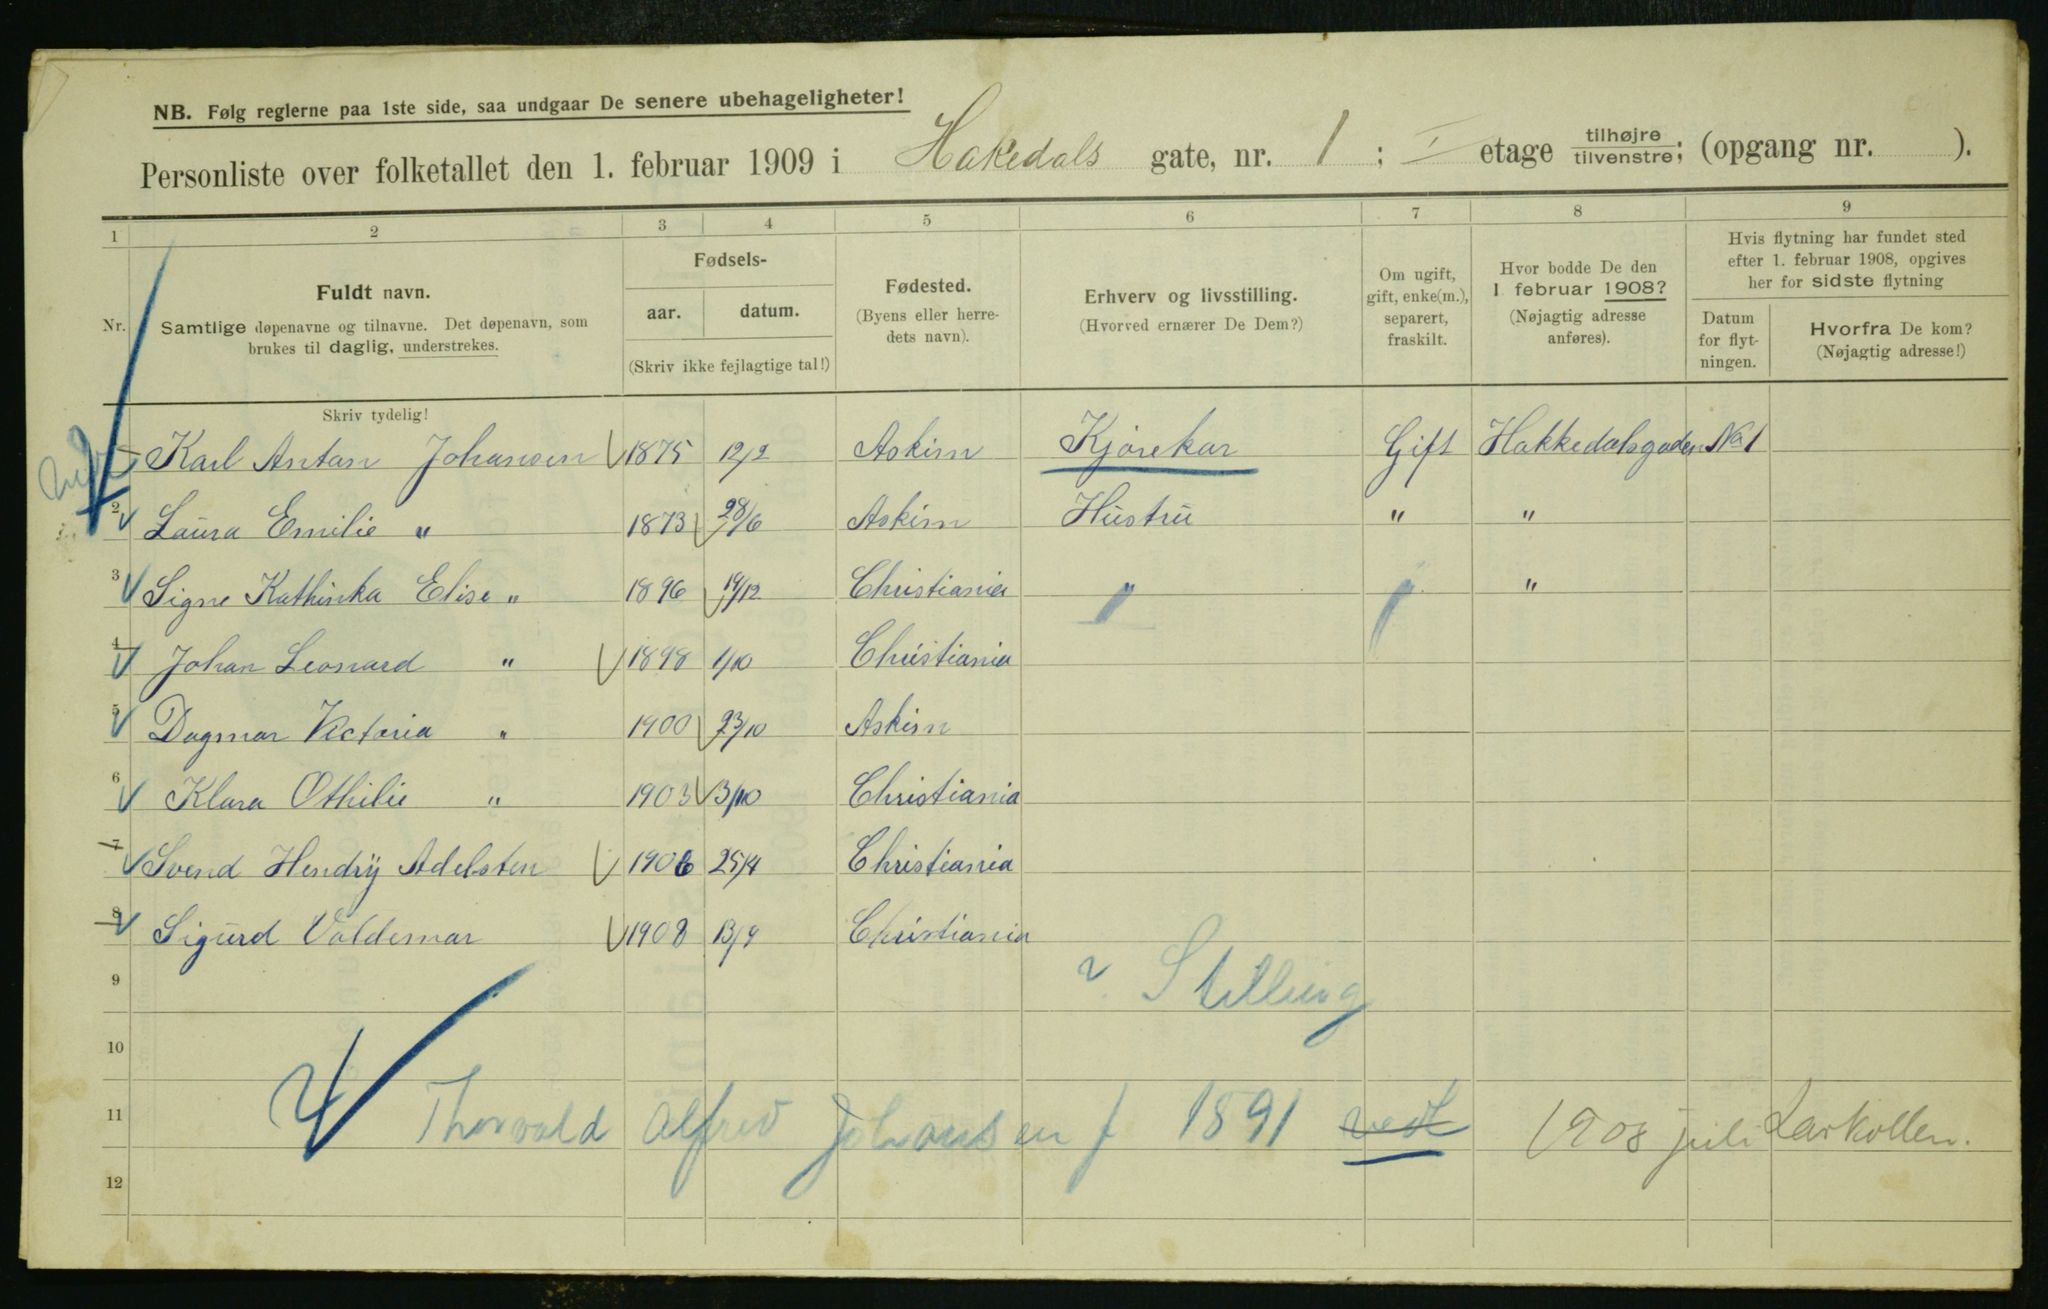 NB. Følg reglerne paa 1ste side, saa undgaar De senere ubehageligheter!
Personliste over folketallet den 1. februar 1909 i Hakedals gate, nr. 1 ; I etage tilhøjre / tilvenstre; (opgang nr. ).
1 2 3 4 5 6 7 8 9
Nr.
Fuldt navn.
Samtlige døpenavne og tilnavne. Det døpenavn, som
brukes til daglig, understrekes.
Fødsels-
aar. datum.
(Skriv ikke fejlagtige tal!)
Fødested.
(Byens eller herre-
dets navn).
Erhverv og livsstilling.
(Hvorved ernærer De Dem?)
Om ugift,
gift, enke(m.),
separert,
fraskilt.
Hvor bodde De den
1 februar 1908?
(Nøjagtig adresse
anføres).
Hvis flytning har fundet sted
efter 1. februar 1908, opgives
her for sidste flytning
Datum
for flyt-
ningen.
Hvorfra De kom?
(Nøjagtig adresse!)
Skriv tydelig!
Karl Antan Johansen 1875 12/2 Askim Kjørekar Gift Hakkedalsgaden No 1
2 Laura Emilie " 1873 28/6 Askim Hustru " "
3 Signe Kathinka Elise " 1896 19/12 Christiania " "
4 Johan Leonard " 1898 1/10 Christiania
5 Dagmar Victoria " 1900 23/10 Askim
6 Klara Othilie " 1903 3/10 Christiania
7 Svend Hendrÿ Adelsten 1906 25/4 Christiania
8 Sigurd Valdemar 1908 13/9 Christiania
9 Stilling
10
11 Thorvald Alfred Johansen f 1891 1908 juli Larkollen.
12